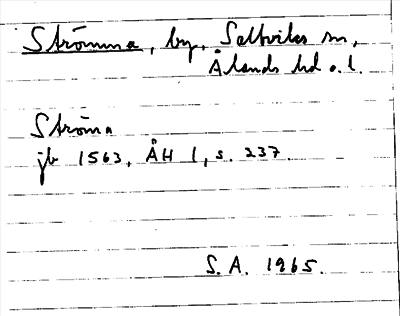 Strömma, by, Saltviks sn,
Ålands hd o. l.
Ströma
jb 1563, ÅH 1, s. 237
S. A. 1965.